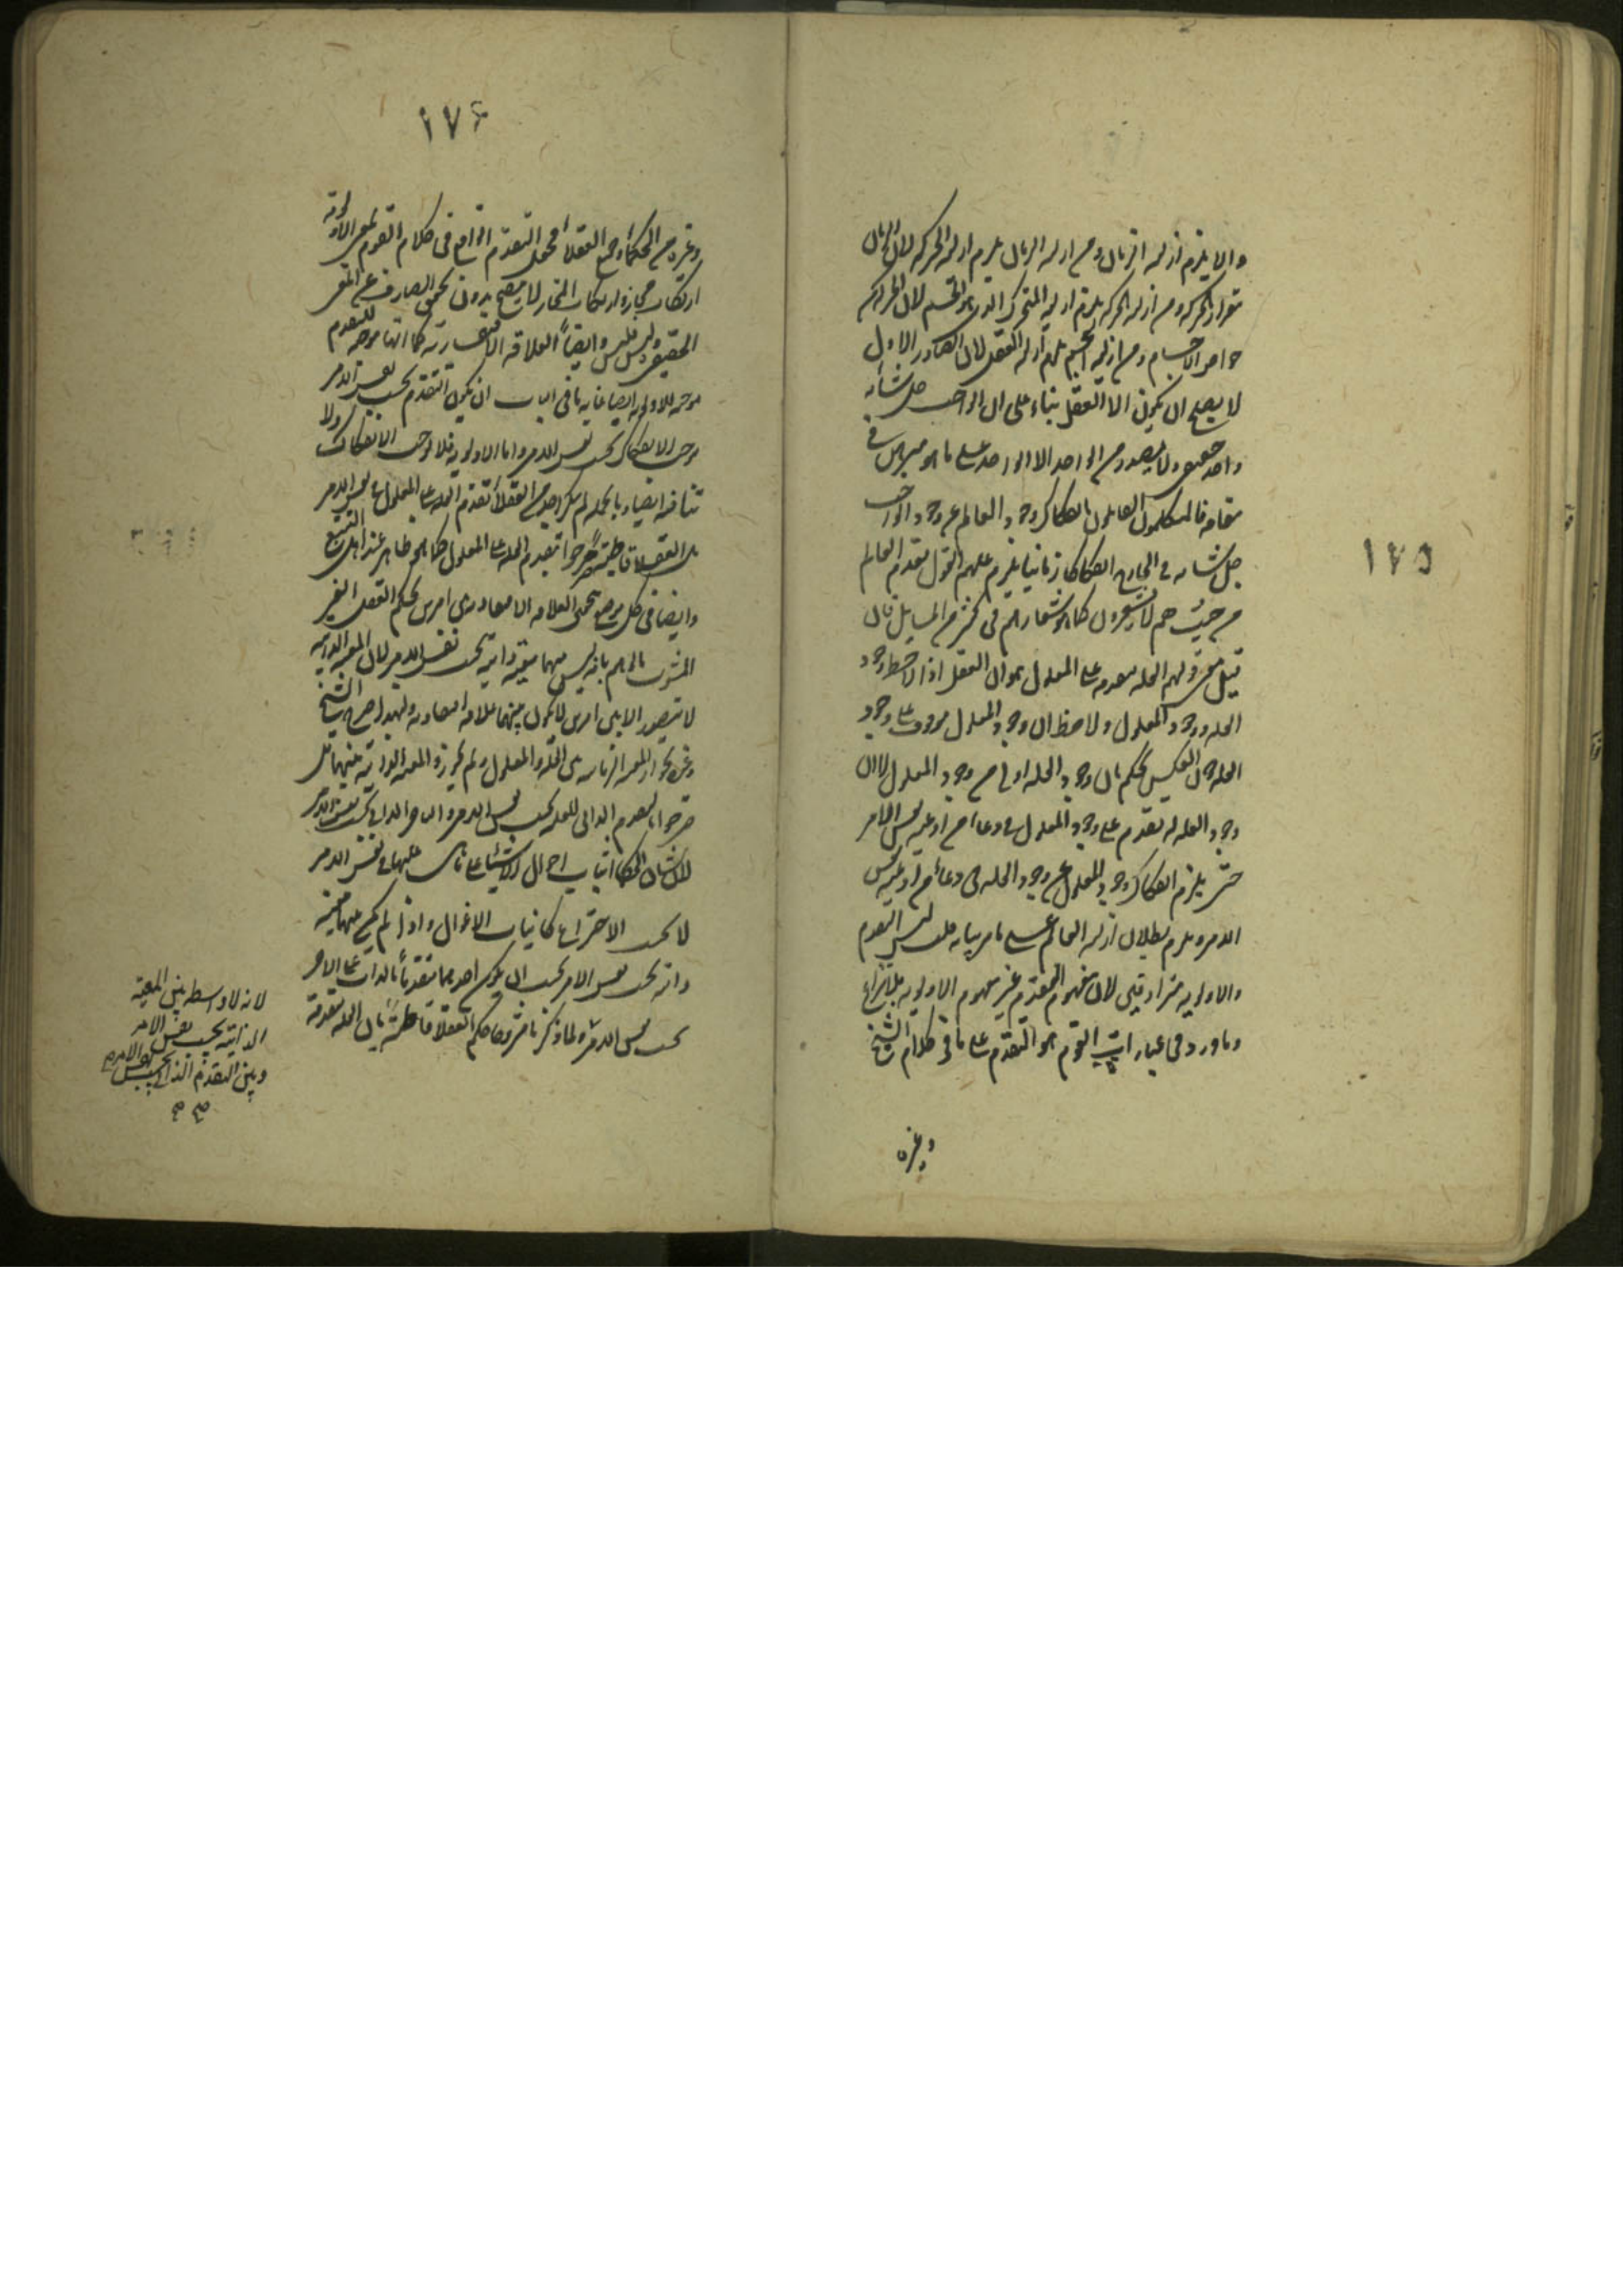 ١٧٥
والا يلزم ازلية الزمان ومن ازلية الزمان يلزم ازلية الحركة لان الزمان
مقدار الحركة ومن ازلية الحركة يلزم ازلية المتحرك الذى هو الجسم لان الحركة
من الاجسام ومن ازلية الجسم يلزم ازلية العقل لان الصادر الاول
لا يصلح ان يكون الا العقل بناء على ان الواحب جل شأنه
واحد حقيقى ولا يصدر من الواحد الا الواحد على ما هو مبرهن فى
مقامه فالمتكلمون القائلون بانفكاك وجود العالم عن وجود الواجب
جل شانه فى الخارج انفكاكا زمانيا يلزم عليهم القول بقدم العالم
من حيث هم لا يشعرون كما هو شعارهم فى كثير من المسايل فان
قيل معنى قولهم العلة متقدمة على المعلول هو ان العقل اذا لاحظ وجود
العلة ووجود المعلول ولاحظ ان وجود المعلول موقوف على وجود
العلة دون العكس يحكم بان وجود العلة اولى من وجود المعلول لا ان
وجود العلة له تقدم على وجود المعلول فى وعاء من اوعية نفس الامر
حتى يلزم انفكاك وجود المعلول عن وجود العلة فى وعاء من اوعية نفس
الامر ويلزم بطلان ازلية العالم على ما مر بيانه قلت ليس التقدم
والاولوية مترادفين لان مفهوم التقدم غير مفهوم الاولوية بلا نزاع
وما ورد فى عبارات القوم هو التقدم على ما فى كلام الشيخ
وغيره
١٧۶
وغيره من الحكماء وجميع العقلاء فحمل التقدم الواقع فى كلام القوم بمعنى الاولوية
ارتكاب مجاز وارتكاب المجاز لا يصح بدون تحقق الصارف عن المعنى
الحقيقى وليس فليس وايضاً العلاقة الافتقارية كما انها موجبة للتقدم
موجبة للاولوية ايضا غاية ما فى الباب ان يكون التقدم بحسب نفس الامر
موجب الانفكاك بحسب نفس الامر واما الاولوية فلا توجب الانفكاك ولا
تنافيه ايضا وبالجملة لم ينكر احد من العقلاء تقدم العلة على المعلول فى نفس الامر
بل العقلاء قاطبة صرحوا بتقدم العلة على المعلول كما هو ظاهر عند اهل التتبع
وايضا فى كل موضع تحقق العلاقة الافتقارية بين امرين يحكم العقل الغير
المشوب بالوهم بانه ليس بينهما معية ذاتية بحسب نفس الامر لان المعية الذاتية
لا تتصور الا بين امرين لا يكون بينهما علاقة افتقارية ولهذا صرح الشيخ
وغيره بجواز المعية الزمانية بين العلة والمعلول ولم يجوزوا المعية الذاتية بينهما بل
صرحوا بالتقدم الذاتى للعلة بحسب نفس الامر والتاخر الذاتى بحسب نفس الامر
لان شان الحكماء اثبات احوال الاشياء على ما هى عليها فى نفس الامر
لا بحسب الاختراع كانياب الاغوال واذا لم يكن بينهما معية
ذاتية بحسب نفس الامر يجب ان يكون احدهما متقدماً بالذات على الاخر
بحسب نفس الامر ولما ذكرنا مشروحا حكم العقلاء قاطبةً بان العلة متقدمة
لانه لا واسطه بين المعية
الذاتية بحسب نفس الامر
وبين التقدم الذاتى بحسب نفس الامر